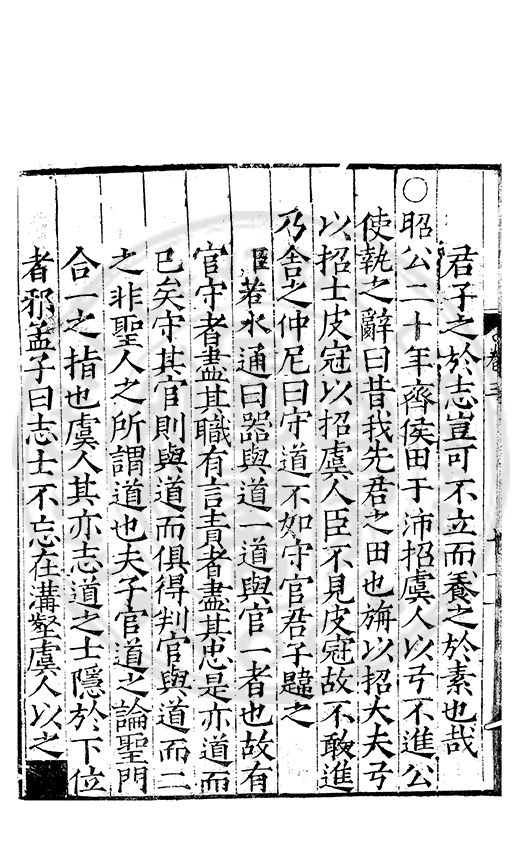 君子之於志豈可不立而養之於素也哉
○
昭公二十年齊侯田于沛招虞人以弓不進公
使執之辭曰昔我先君之田也旃以招大夫弓
以招士皮冠以招虞人臣不見皮冠故不敢進
乃舍之仲尼曰守道不如守官君子韙之
臣若水通曰器與道一道與官一者也故有
官守者盡其職有言責者盡其忠是亦道而
已矣守其官則與道而俱得判官與道而二
之非聖人之所謂道也夫子官道之論聖門
合一之指也虞人其亦志道之士隱於下位
者邪孟子曰志士不忘在溝壑虞人以之
卷三